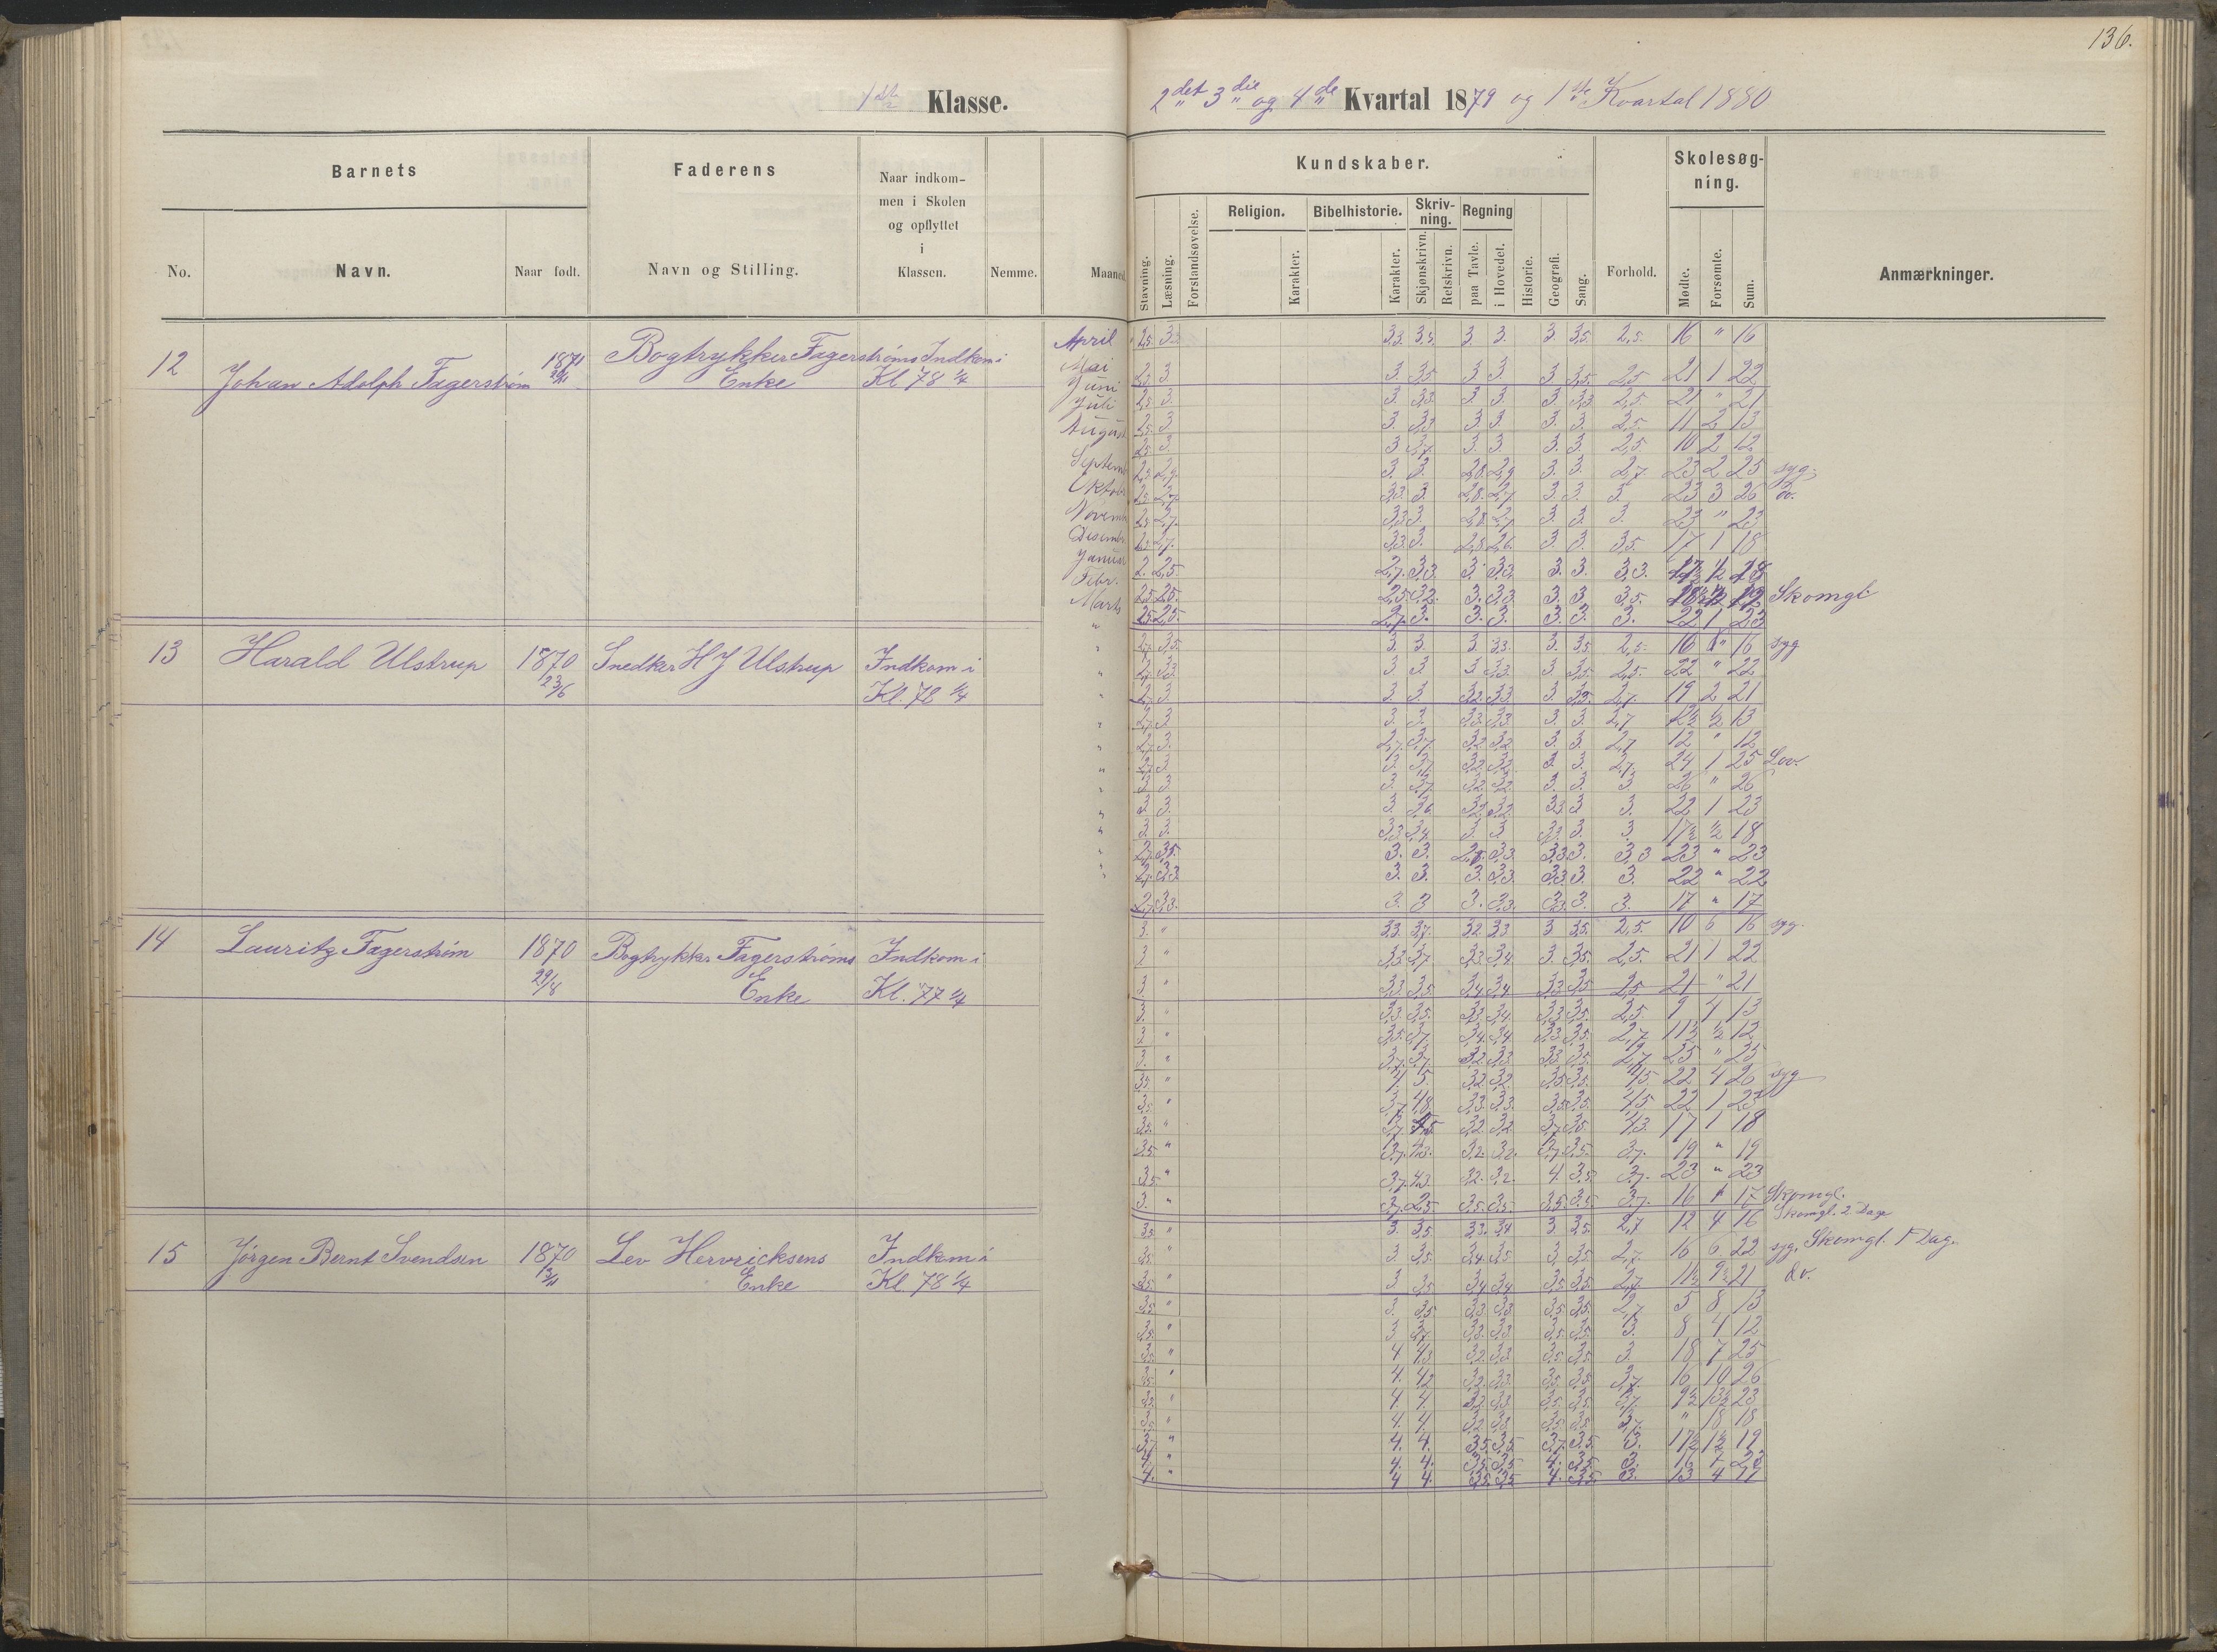 136.
1ste Klasse.
2det 3die og 4de Kvartal 1879 og 1ste Kvartal 1880
Barnets
Faderens
Naar indkom-
men i Skolen
og opflyttet
i
Klassen.
Kundskaber.
Skolesøg-
ning.
No.
Navn.
Naar født.
Navn og Stilling.
Nemme.
Maaned
Stavning.
Læsning.
Forstandsøvelse.
Religion.
Karakter.
Bibelhistorie.
Karakter.
Skriv-
ning.
Skjønskrivn.
Retskrivn.
Regning
paa Tavle.
i Hovedet.
Historie.
Geografi.
Sang.
Forhold.
Mødte.
Forsømte.
Sum.
Anmærkninger.
12 Johan Adolph Fagerstrøm 1871 Bogtrykker Fagerstrøms Enke Indkom i Kl 78 1/4
April 2,5. 3. 3. 3. 3,5. 2,5. 16 " 16
Mai 3 3. 3,5 3 3. 3 3,5. 2,5 21 1 22
Juni 3 3. 3,3 3. 3 3. 3,3 2,5. 21 " 21
Juli 3 3. 3,3 3. 3. 3. 3. 11 2 13
August 3. 3 3. 3. 3. 3. 2,5. 10 2 12
Septemb 2,5 2,9. 3. 3. 2,8. 2,9 3. 3. 2,7. 23 2 25 syg.
Oktob 2,7. 3,3. 3. 2,8. 2,7 3. 3. 3. 23 3 26 do.
Novem 2,7. 3,3 3. 2,8. 2,7 3. 3. 3. 23 " 23
Desemb 2,7. 3,3. 3. 2,8. 2,6. 3. 3. 3,5. 17 1 18
Januar 2. 2,5. 2,7. 3,3. 3. 3,3. 3. 3. 3,3.
Febr. 2,5 2,5. 2,5 3,2. 3. 3,3. 3. 3 3,5. Skomgl.
Marts 2,5 2,5. 2,7. 3. 3. 3. 3. 3. 3. 22 1 23
13 Harald Ulstrup 1870 23/6 Snedker H J Ulstrup Indkom i Kl. 78 1/4
3,5. 3. 3. 3 3,3. 3. 3,5 2,5. 16 " 16 syg
3,3 3 3 3 3,3. 3 3,5. 2,5. 22 " 22
2,7. 3. 3. 3. 3,2. 3,3. 3 3,3. 2,7. 19 2 21
2,7. 3 3. 3. 3,3. 3,3. 3. 3. 2,7 12½ ½ 13
2,7. 3. 2,7. 3,7. 3,2 3,2 3. 3. 2,7 12 " 12
2,7. 3 3. 3,7. 3,2. 3,2. 3. 3. 2,7. 24 1 25 Lov.
3 3 3. 3,7 3,2. 3,2. 3. 3. 3 26 " 26
3. 3. 3. 3,6 3,2 3,2. 3,3 3 3. 22 1 23
3. 3. 3,3 3,4. 3. 3. 3,3. 3. 3. 17½ ½ 18
2,7. 3,5. 3. 3. 2,8. 3,3. 3,3 3. 3,3 23 " 23
2,7. 3,3. 3. 3. 3. 3,3. 3,3 3. 3. 22 " 22
2,7. 3,3. 3. 3 3. 3,3. 3,3. 3. 3. 17 " 17
14 Lauritz Fagerstrøm 1870 29/8 Bogtrykker Fagerstrøms Enke Indkom i Kl. 77 1/4
3. " 3,3. 3,7. 3,2 3,3. 3 3,5. 2,5. 10 6 16 syg.
3 " 3,3 3,7. 3,3. 3,4. 3. 3,5. 2,5. 21 1 22
3. " 3,3. 3,5 3,4 3,4. 3,3 3,5 2,5 21 " 21
3. " 3,3 3,5. 3,3. 3,4. 3,3 3,5. 2,5. 9 4 13
3 " 3,5. 3,7. 3,4. 3,4. 3,3 3,5. 2,7 11½ ½ 12
3. " 3,7. 3,7. 3,2. 3,3 3,3. 3,5. 2,7 25 " 25
3,5. " 4. 5. 3,2 3,2. 3,5 3,5. 4,5. 22 4 26 syg
3,5. " 3,7 4,8 3,3 3,3. 3,5 3,5. 4,5 22 1 23
3,5. " 3,7. 3,2. 3,2. 3,7. 3,5. 4,3. 17 1 18
3,5 " 3,7. 4,3. 3,2. 3,2. 3,7. 3,5. 3,7. 19 " 19
3,5 " 3,7. 4,3. 3,2. 3,2. 4 3,5 3,7. 23 " 23
3. " 3,7. 2,5 3,5. 3,5. 3,5 3,5. 3,7. 16 1 17 Skomgl.
15 Jørgen Bernt Svendsen 1870 Lev Henricksens Enke Indkom i Kl. 78 1/4
3,5 " 3. 3,5 3,3. 3,4 3 3,5. 2,7 12 4 16 Skomgl. 2 Dage
3,5. " 3 3,5. 3,4. 3,5 3 3,5. 2,7. 16 6 22 syg. Skomgl. 1 Dag.
3,5. " 3 3,5 3,4 3,4 3,5 3,5. 2,7. 11½ 9½ 21 do.
3,5. " 3. 3,5 3,3 3,3 3,5 3,5. 2,7 5 8 13
3,5. " 3 3,7. 3,3. 3,3 3,5. 3,5. 3. 8 4 12
3,5. " 4 4,3 3,2 3,3 3,5 3,5 3. 18 7 25
3,5. " 4. 4,2 3,2. 3,3. 3,5. 3,5 3,7. 16 10 26
3,5 " 4. 4. 3,2 3,3 3,5. 3,5. 3,7. 9½ 13½ 23
3,5 " 4. 4. 3,2 3,3. 3,5 3,5 3,7. " 18 18
3,7 " 4. 4. 3,5 3,5 3,7. 3,5 3. 17½ 1½ 19
4. " 4. 4. 3,5. 3,5 4. 3,5 3. 16 7 23
4. " 4 4. 3,5. 3,5 4. 3,5 3. 13 4 17